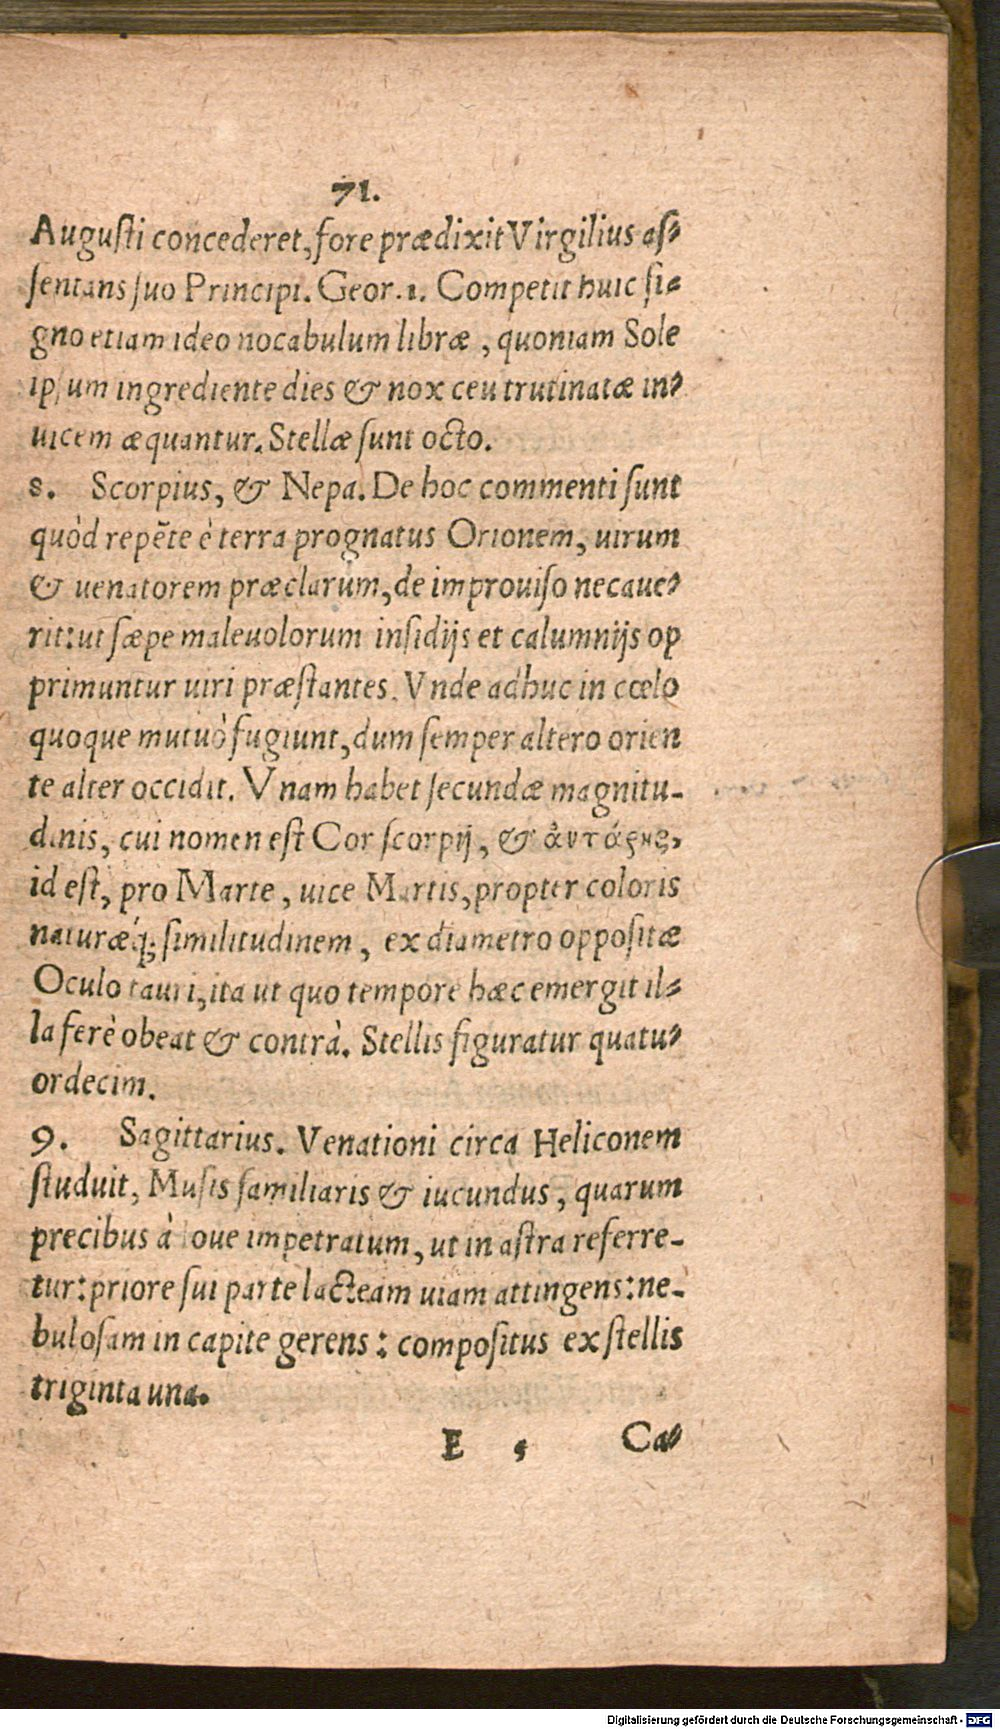 71.
Auguſti concederet, fore prædixit Virgilius aſ⸗
ſentans ſuo Principi. Geor. 1. Competit huic ſi⸗
gno etiam ideo nocabulum libræ, quoniam Sole
ipſum ingrediente dies & nox ceu trutinatæ in⸗
uicem æquantur. Stellæ ſunt octo.
8. Scorpius, & Nepa. De hoc commenti ſunt
quòd repẽte è terra prognatus Orionem, uirum
& uenatorem præclarum, de improuiſo necaue⸗
rit: ut ſæpe maleuolorum inſidijs et calumnijs op
primuntur uiri præſtantes. Vnde adhuc in cœlo
quoque mutuò fugiunt, dum ſemper altero orien
te alter occidit. Vnam habet ſecundæ magnitu-
dinis, cui nomen eſt Cor ſcorpij, & ἀντάρης,
id eſt, pro Marte, uice Martis, propter coloris
naturæq́; ſimilitudinem, ex diametro oppoſitæ
Oculo tauri, ita ut quo tempore hæc emergit il⸗
la ferè obeat & contrà. Stellis figuratur quatu⸗
ordecim.
9. Sagittarius. Venationi circa Heliconem
ſtuduit, Muſis familiaris & iucundus, quarum
precibus à Ioue impetratum, ut in aſtra referre-
tur: priore ſui parte lacteam uiam attingens: ne-
buloſam in capite gerens: compoſitus ex ſtellis
triginta una.
E 5 Ca⸗
Digitalisierung gefördert durch die Deutsche Forschungsgemeinschaft - DFG